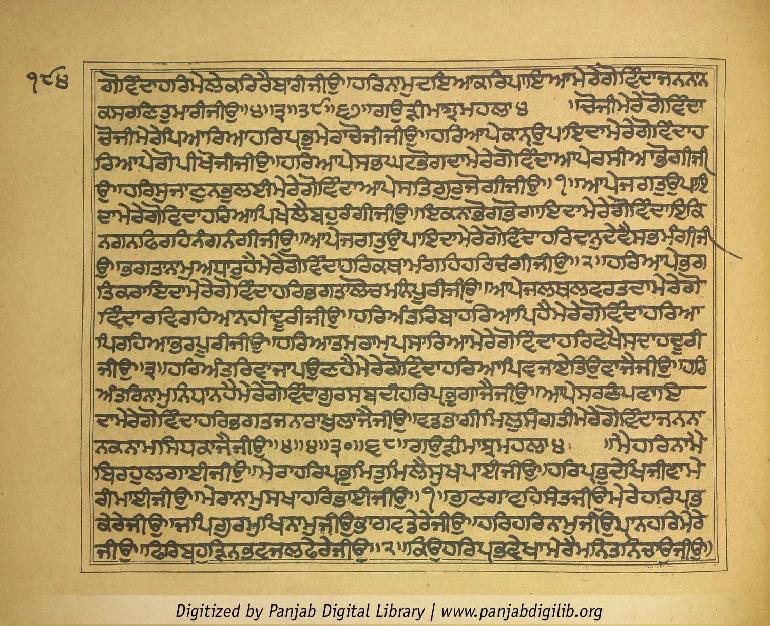 ੧੮੪
ਗੋਵਿੰਦਾਹਰਿਮੇਲੇਕਰਿਰੈਬਾਰੀਜੀਉ॥ਹਰਿਨਾਮੁਦਇਆਕਰਿਪਾਇਆਮੇਰੇਗੋਵਿੰਦਾਜਨਨਾਨ
ਕਸਰਣਿਤੁਮਾਰੀਜੀਉ॥੪॥੩॥੨੯॥੬੭॥ਗਉੜੀਮਾਝਮਹਲਾ੪ ॥ਚੋਜੀਮੇਰੇਗੋਵਿੰਦਾ
ਚੋਜੀਮੇਰੇਪਿਆਰਿਆਹਰਿਪ੍ਰਭੁਮੇਰਾਚੋਜੀਜੀਉ॥ਹਰਿਆਪੇਕਾਨੑਉਪਾਇਦਾਮੇਰੇਗੋਵਿੰਦਾਹ
ਰਿਆਪੇਗੋਪੀਖੋਜੀਜੀਉ॥ਹਰਿਆਪੇਸਭਘਟਭੋਗਦਾਮੇਰੇਗੋਵਿੰਦਾਆਪੇਰਸੀਆਭੋਗੀਜੀ
ਉ॥ਹਰਿਸੁਜਾਣੁਨਭੁਲਈਮੇਰੇਗੋਵਿੰਦਾਆਪੇਸਤਿਗੁਰੁਜੋਗੀਜੀਉ॥੧॥ਆਪੇਜਗਤੁਉਪਾਇ
ਦਾਮੇਰੇਗੋਵਿਦਾਹਰਿਆਪਿਖੇਲੈਬਹੁਰੰਗੀਜੀਉ॥ਇਕਨਾਭੋਗਭੋਗਾਇਦਾਮੇਰੇਗੋਵਿੰਦਾਇਕਿ
ਨਗਨਫਿਰਹਿਨੰਗਨੰਗੀਜੀਉ॥ਆਪੇਜਗਤੁਉਪਾਇਦਾਮੇਰੇਗੋਵਿੰਦਾਹਰਿਦਾਨੁਦੇਵੈਸਭਮੰਗੀਜੀ
ਉ॥ਭਗਤਾਨਾਮੁਆਧਾਰੁਹੈਮੇਰੇਗੋਵਿੰਦਾਹਰਿਕਥਾਮੰਗਹਿਹਰਿਚੰਗੀਜੀਉ॥੨॥ਹਰਿਆਪੇਭਗ
ਤਿਕਰਾਇਦਾਮੇਰੇਗੋਵਿੰਦਾਹਰਿਭਗਤਾਲੋਚਮਨਿਪੂਰੀਜੀਉ॥ਆਪੇਜਲਥਲਵਰਤਦਾਮੇਰੇਗੋ
ਵਿੰਦਾਰਵਿਰਹਿਆਨਹੀਦੂਰੀਜੀਉ॥ਹਰਿਅੰਤਰਿਬਾਹਰਿਆਪਿਹੈਮੇਰੇਗੋਵਿੰਦਾਹਰਿਆ
ਪਿਰਹਿਆਭਰਪੂਰੀਜੀਉ॥ਹਰਿਆਤਮਰਾਮਪਸਾਰਿਆਮੇਰੇਗੋਵਿੰਦਾਹਰਿਵੇਖੈਸਦਾਹਦੂਰੀ
ਜੀਉ॥੩॥ਹਰਿਅੰਤਰਿਵਾਜਾਪਉਣਹੈਮੇਰੇਗੋਵਿੰਦਾਹਰਿਆਪਿਵਜਾਏਤਿਉਵਾਜੈਜੀਉ॥ਹਰਿ
ਅੰਤਰਿਨਾਮੁਨਿਧਾਨਹੈਮੇਰੇਗੋਵਿੰਦਾਗੁਰਸਬਦੀਹਰਿਪ੍ਰਭੁਗਾਜੈਜੀਉ॥ਆਪੇਸਰਣਿਪਵਾਇ
ਦਾਮੇਰੇਗੋਵਿੰਦਾਹਰਿਭਗਤਜਨਾਰਾਖੁਲਾਜੈਜੀਉ॥ਵਡਭਾਗੀਮਿਲੁਸੰਗਤੀਮੇਰੇਗੋਵਿੰਦਾਜਨਨਾ
ਨਕਨਾਮਸਿਧਿਕਾਜੈਜੀਉ॥੪॥੪॥੩੦॥੬੮॥ਗਉੜੀਮਾਝਮਹਲਾ੪ ॥ਮੈਹਰਿਨਾਮੈ
ਬਿਰਹੁਲਗਾਈਜੀਉ॥ਮੇਰਾਹਰਿਪ੍ਰਭੁਮਿਤੁਮਿਲੈਸੁਖਪਾਈਜੀਉ॥ਹਰਿਪ੍ਰਭੁਦੇਖਿਜੀਵਾਮੇ
ਰੀਮਾਈਜੀਉ॥ਮੇਰਾਨਾਮੁਸਖਾਹਰਿਭਾਈਜੀਉ॥੧॥ਗੁਣਗਾਵਹਿਸੰਤਜੀਉਮੇਰੇਹਰਿਪ੍ਰਭ
ਕੇਰੇਜੀਉ॥ਜਪਿਗੁਰਮੁਖਿਨਾਮੁਜੀਉਭਾਗਵਡੇਰੇਜੀਉ॥ਹਰਿਹਰਿਨਾਮੁਜੀਉਪ੍ਰਾਨਹਰਿਮੇਰੇ
ਜੀਉ॥ਫਿਰਿਬਹੁੜਿਨਭਵਜਲਫੇਰੇਜੀਉ॥੨॥ਕਿਉਹਰਿਪ੍ਰਭਵੇਖਾਮੇਰੈਮਨਿਤਨਿਚਾਉਜੀਉ॥
Digitized by Panjab Digital Library | www.panjabdigilib.org